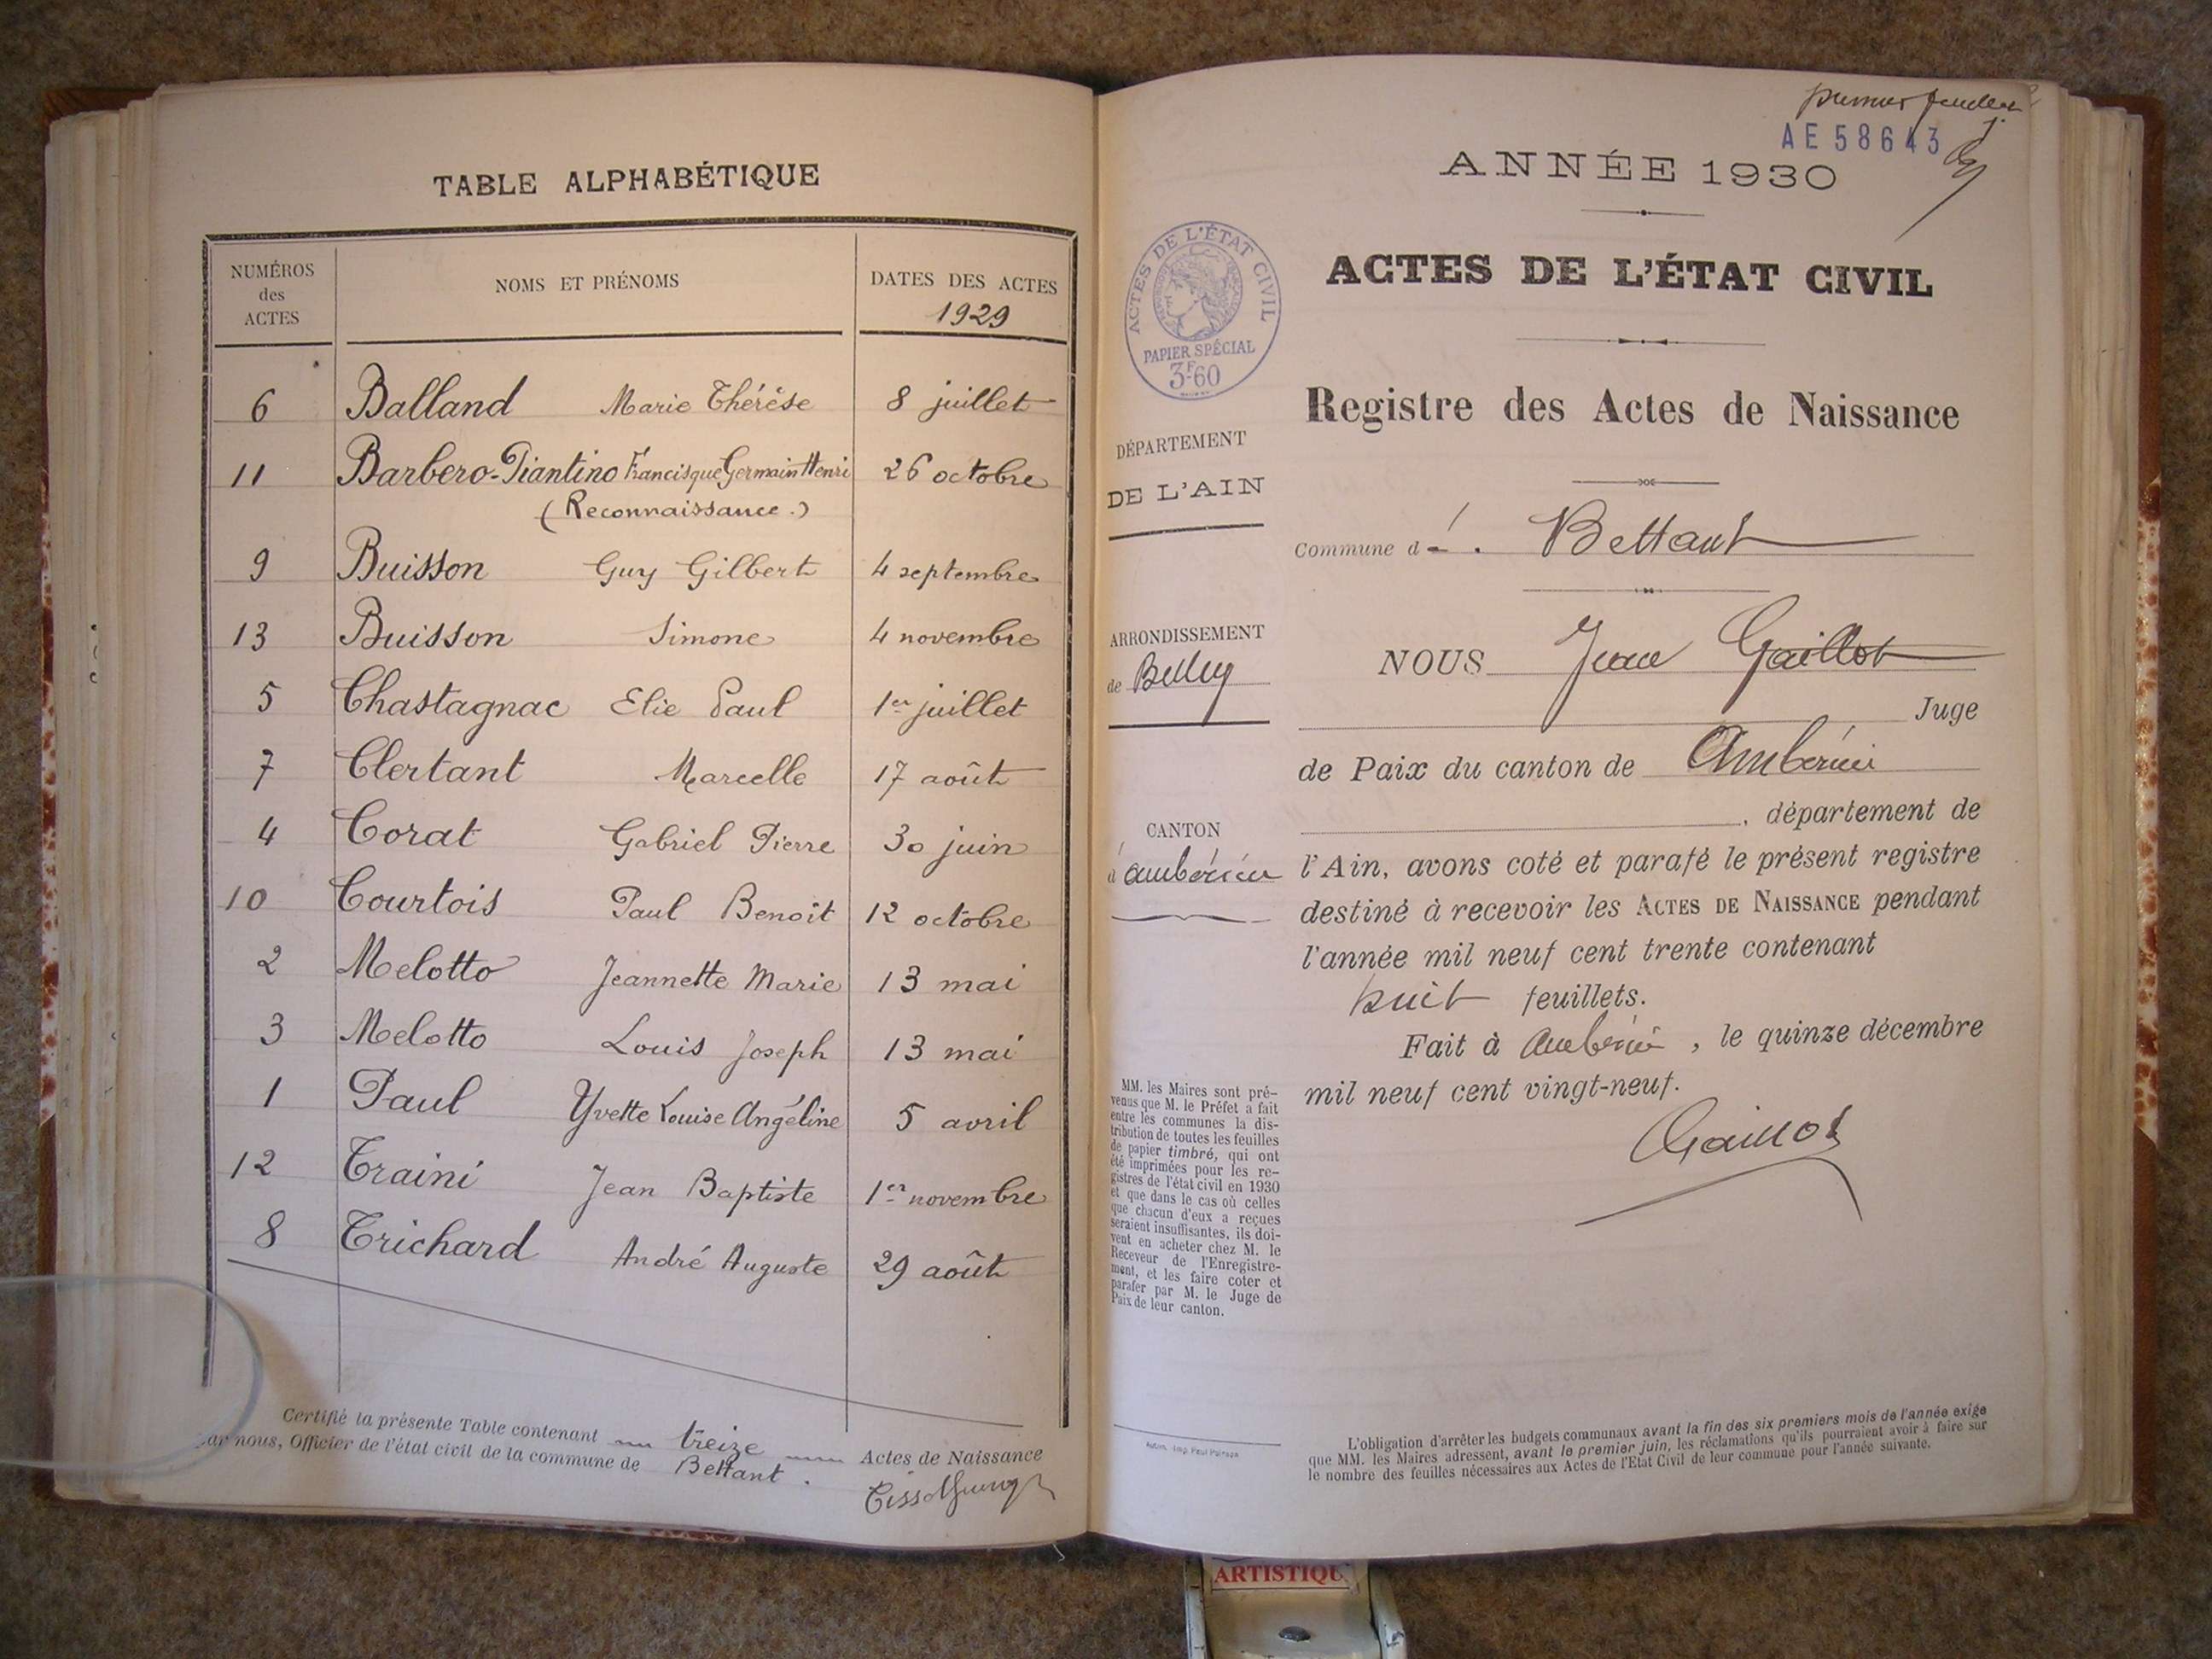 TABLE ALPHABÉTIQUE
NUMÉROS des ACTES
NOMS ET PRÉNOMS
DATES DES ACTES
1929
6 Balland Marie Thérèse 8 juillet
11 Barbero-Piantino Francisque Germain Henri 26 octobre
(Reconnaissance.)
9 Buisson Guy Gilbert 4 septembre
13 Buisson Simone 4 novembre
5 Chastagnac Elie Paul 1er juillet
7 Clertant Marcelle 17 août
4 Corat Gabriel Pierre 30 juin
10 Courtois Paul Benoit 12 octobre
2 Melotto Jeannette Marie 13 mai
3 Melotto Louis Joseph 13 mai
1 Paul Yvette Louise Angéline 5 avril
12 Traini Jean Baptiste 1er novembre
8 Trichard André Auguste 29 août
Certifié la présente Table contenant treize Actes de Naissance
par nous, Officier de l'état civil de la commune de Bettant.
premier feuillet
AE 58643
ANNÉE 1930
ACTES DE L'ÉTAT CIVIL
ACTES DE L'ÉTAT CIVIL
PAPIER SPÉCIAL
3F60
Registre des Actes de Naissance
DÉPARTEMENT
DE L'AIN
Commune de Bettant
ARRONDISSEMENT
de Belley
NOUS Jean Gaillot
Juge
de Paix du canton de Ambérieu
, département de
CANTON
d'Ambérieu
l'Ain, avons coté et parafé le présent registre
destiné à recevoir les ACTES DE NAISSANCE pendant
l'année mil neuf cent trente contenant
huit feuillets.
Fait à Ambérieu, le quinze décembre
mil neuf cent vingt-neuf.
Gaillot
MM. les Maires sont pré-
venus que M. le Préfet a fait
entre les communes la dis-
tribution de toutes les feuilles
de papier timbré, qui ont
été imprimées pour les re-
gistres de l'état civil en 1930
et que dans le cas où celles
que chacun d'eux a reçues
seraient insuffisantes, ils doi-
vent en acheter chez M. le
Receveur de l'Enregistre-
ment, et les faire coter et
parafer par M. le Juge de
Paix de leur canton.
L'obligation d'arrêter les budgets communaux avant la fin des six premiers mois de l'année exige
que MM. les Maires adressent, avant le premier juin, les réclamations qu'ils pourraient avoir à faire sur
le nombre des feuilles nécessaires aux Actes de l'Etat Civil de leur commune pour l'année suivante.
ARTISTIQU